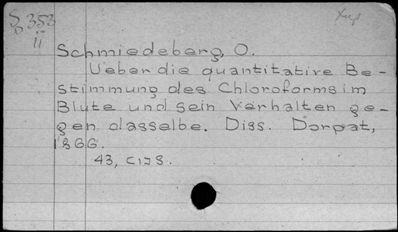 S 353
ii
Schmiedeberg, O.
Ueber die quantitative Be-
stimmung des Chloroforms im
Blute und sein Verhalten ge-
gen dasselbe. Diss. Dorpat,
1866.
43, c1js.